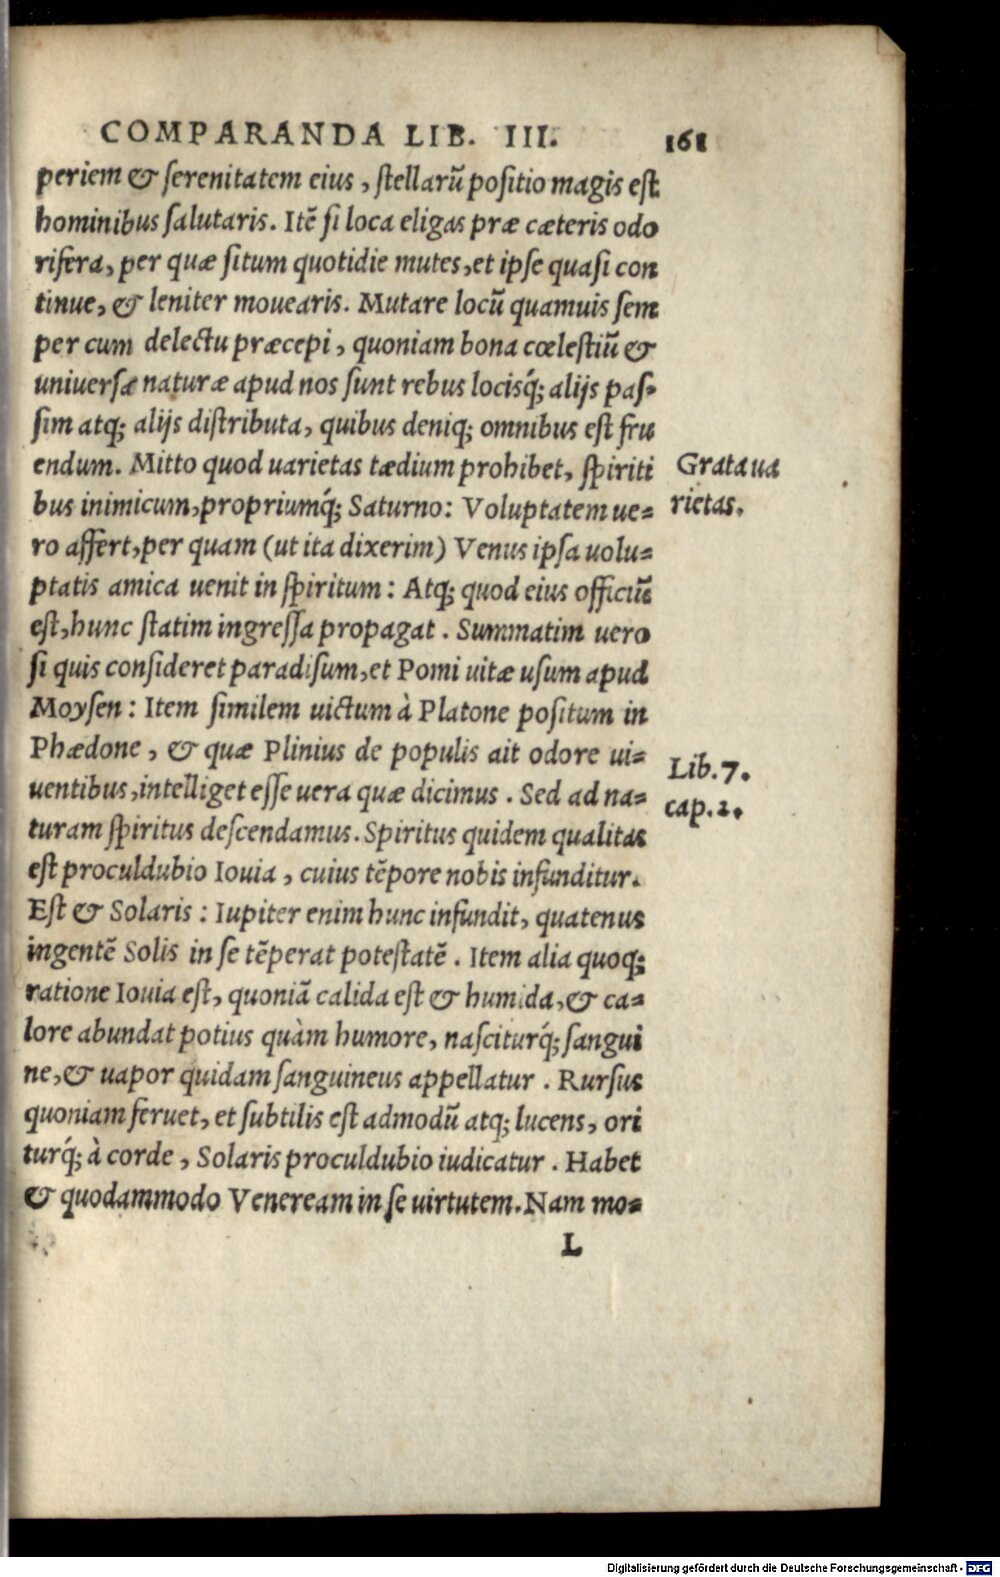 COMPARANDA LIB. III. 161
periem & serenitatem eius, stellarũ positio magis est
hominibus salutaris. Itẽ si loca eligas præ cæteris odo
rifera, per quæ situm quotidie mutes, et ipse quasi con
tinue, & leniter mouearis. Mutare locũ quamuis sem
per cum delectu præcepi, quoniam bona cœlestiũ &
uniuersæ naturæ apud nos sunt rebus locisq́; alijs pas-
sim atq; alijs distributa, quibus deniq; omnibus est fru
endum. Mitto quod uarietas tædium prohibet, spiriti
bus inimicum, propriumq́; Saturno: Voluptatem ue-
ro affert, per quam (ut ita dixerim) Venus ipsa uolu-
ptatis amica uenit in spiritum: Atq; quod eius officiũ
est, hunc statim ingressa propagat. Summatim uero
si quis consideret paradisum, et Pomi uitæ usum apud
Moysen: Item similem uictum à Platone positum in
Phædone, & quæ Plinius de populis ait odore ui-
uentibus, intelliget esse uera quæ dicimus. Sed ad na-
turam spiritus descendamus. Spiritus quidem qualitas
est proculdubio Iouia, cuius tẽpore nobis infunditur.
Est & Solaris: Iupiter enim hunc infundit, quatenus
ingentẽ Solis in se tẽperat potestatẽ. Item alia quoq;
ratione Iouia est, quoniã calida est & humida, & ca-
lore abundat potius quàm humore, nasciturq́; sangui
ne, & uapor quidam sanguineus appellatur. Rursus
quoniam feruet, et subtilis est admodũ atq; lucens, ori
turq́; à corde, Solaris proculdubio iudicatur. Habet
& quodammodo Veneream in se uirtutem. Nam mo-
L
Grata ua
rietas.
Lib. 7.
cap. 2.
Digitalisierung gefördert durch die Deutsche Forschungsgemeinschaft - DFG